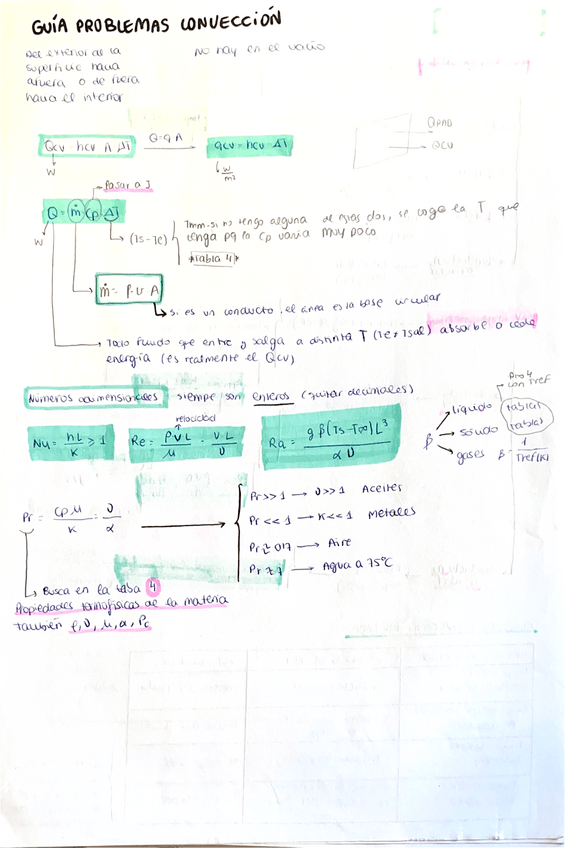 GUÍA PROBLEMAS CONVECCIÓN
Del exterior de la
superficie hacia
afuera o de fuera
hacia el interior
No hay en el vacío
Qcv = hcv A ΔT
Q=q A
qcv = hcv · ΔT
W
W/m²
QRAD
QCV
Pasar a J
Q = ṁ Cp ΔT
W
(Ts-Te)
Tmm. Si no tengo alguna de estas dos, se coge la T que
tenga pq la Cp varía muy poco
*Tabla 4*
ṁ = ρ·υ·A
Si es un conducto, el área es la base circular
Todo fluido que entre y salga a distinta T (Te ≠ Tsal) absorbe o cede
energía (es realmente el Qcv)
Números adimensionales siempre son enteros (quitar decimales)
Nu = hL/K > 1
velocidad
Re = ρVL/μ = VL/υ
Ra = gβ(Ts-T∞)L³/αυ
Pro 4
con Tref
β
líquido
tabla 1
sólido
tabla 1
gases β = 1/Tref(K)
Pr = Cpμ/K = υ/α
Pr >> 1 → υ >> 1 Aceites
Pr << 1 → K << 1 Metales
Pr ≈ 0'7 → Aire
Pr ≈ 7 → Agua a 75°C
Busca en la tabla 4
Propiedades termofísicas de la materia
también ρ, υ, μ, α, Pc